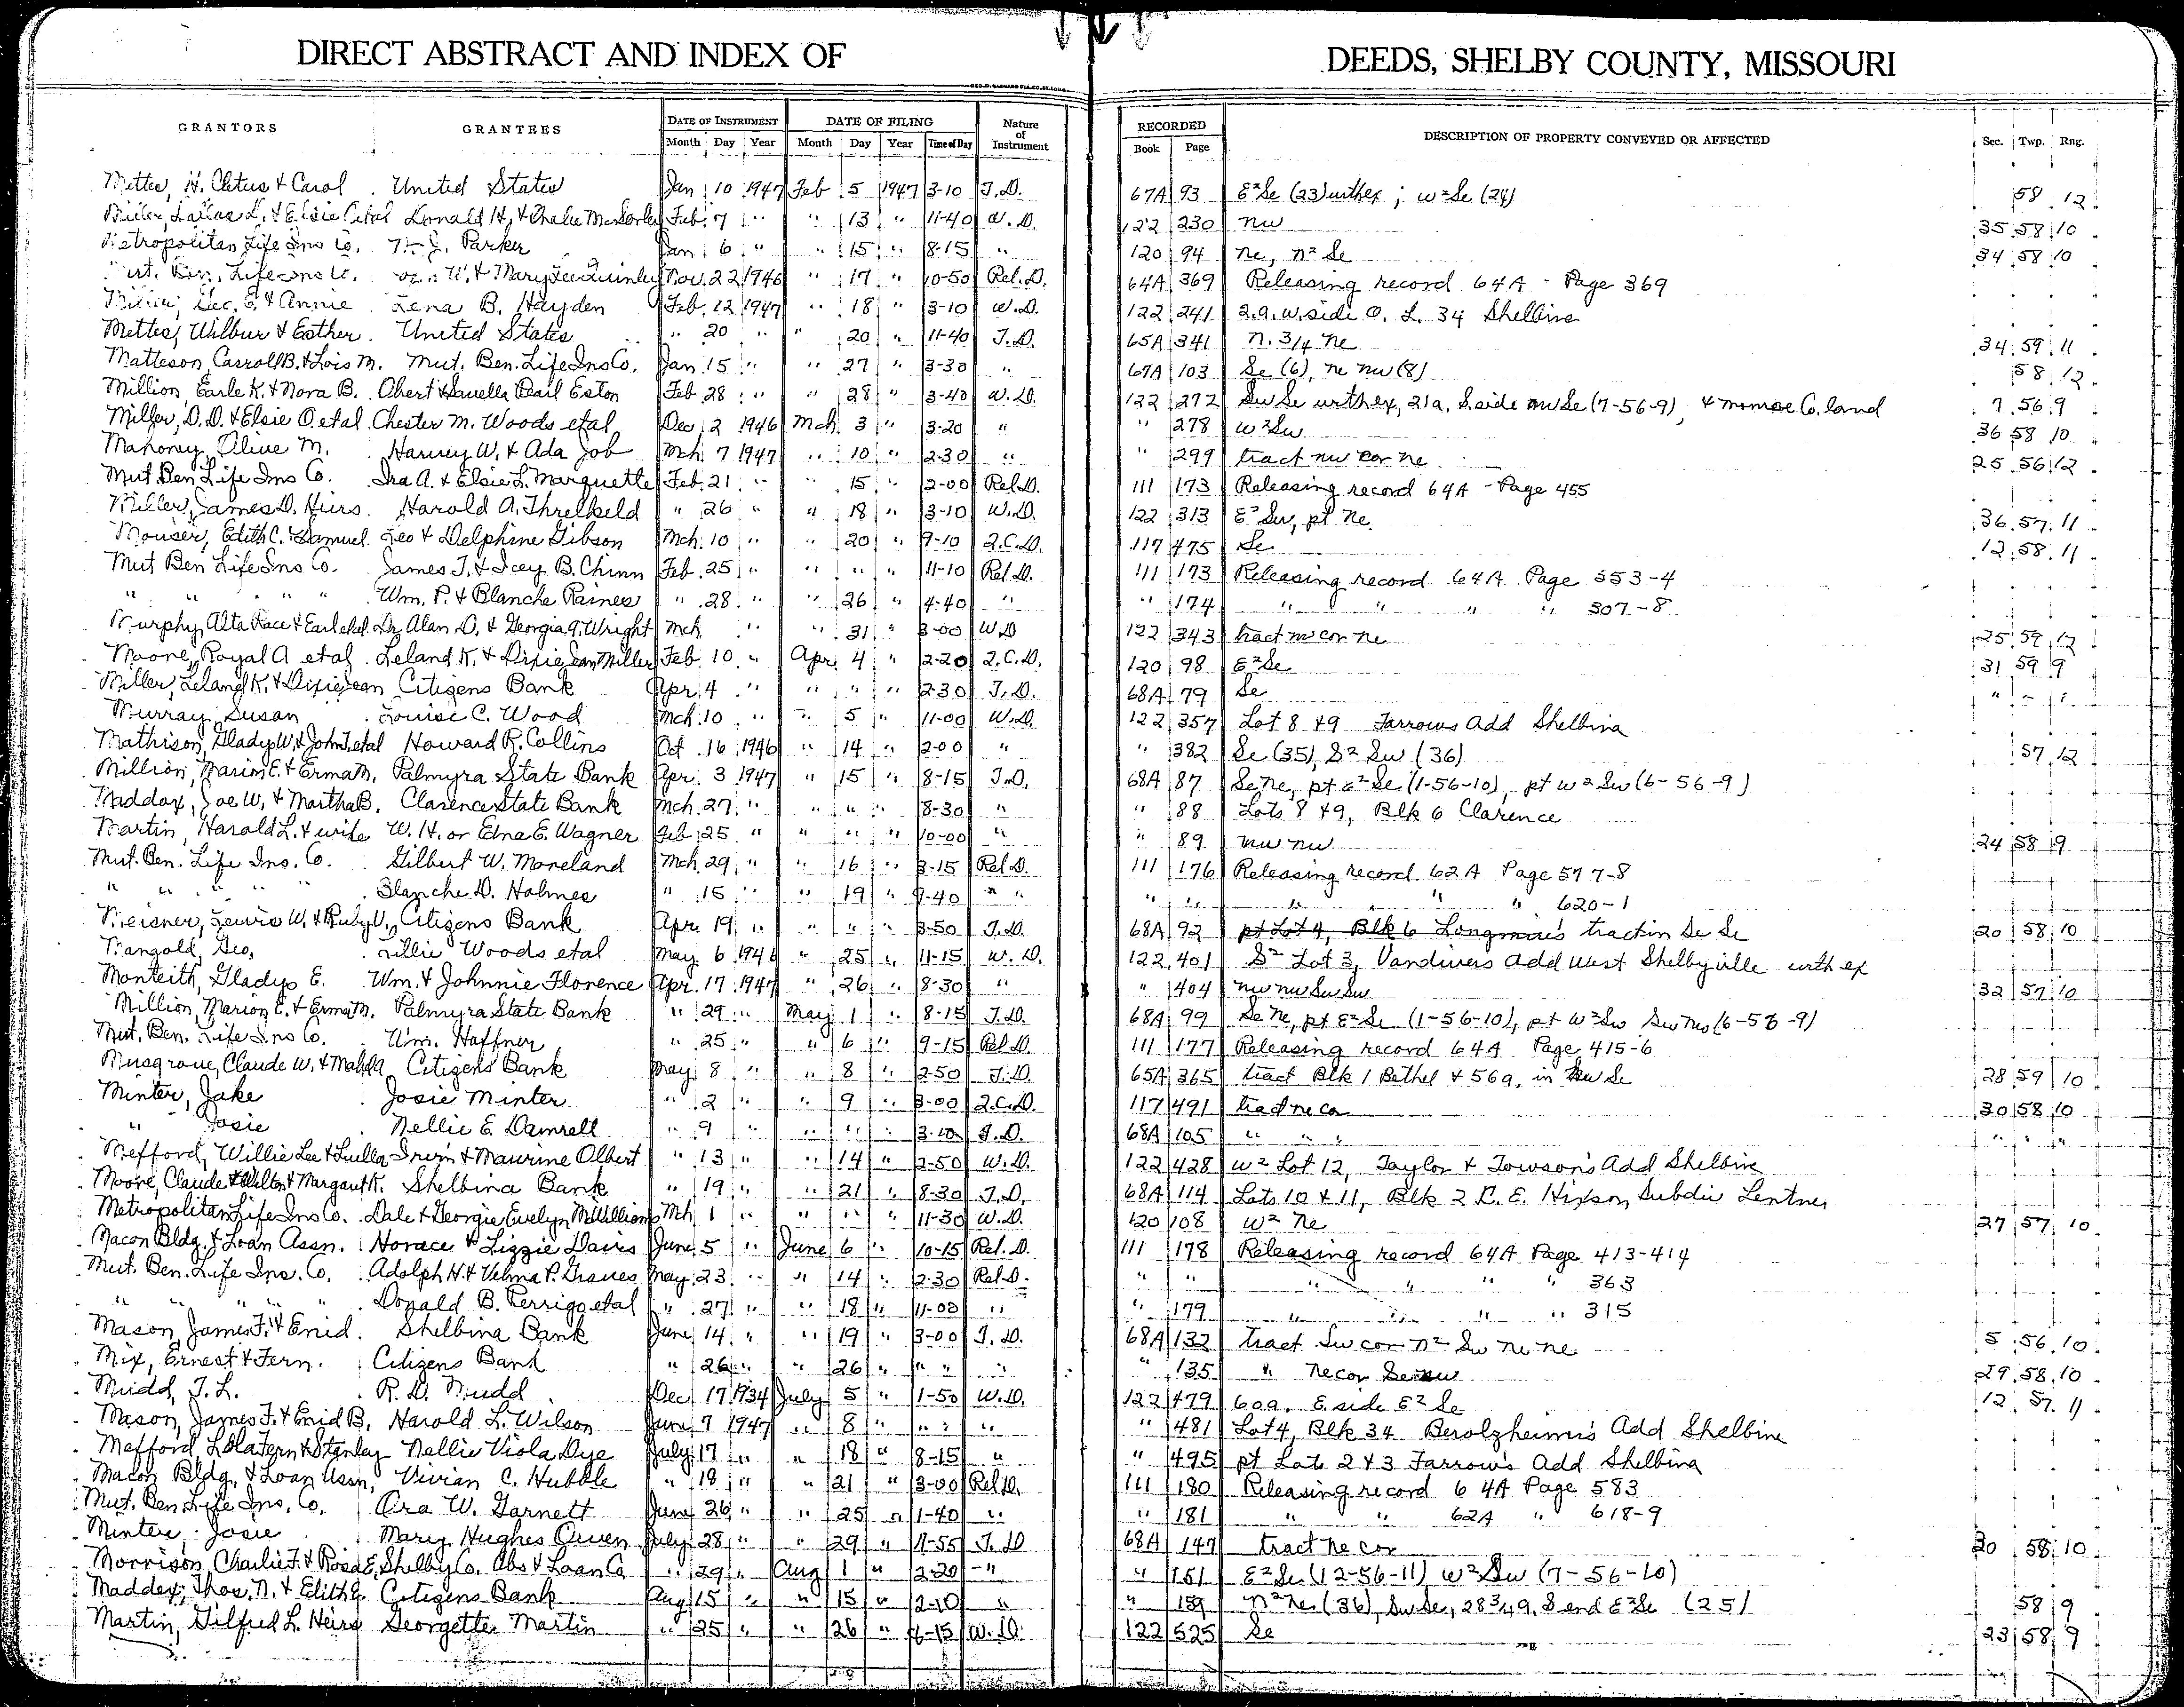 DIRECT ABSTRACT AND INDEX OF DEEDS, SHELBY COUNTY, MISSOURI
GRANTORS GRANTEES DATE OF INSTRUMENT DATE OF FILING Nature of Instrument RECORDED DESCRIPTION OF PROPERTY CONVEYED OR AFFECTED Sec. Twp. Rng.
Month Day Year Month Day Year Time of Day Book Page
Mettes, H. Cletus & Carol United States Jan 10 1947 Feb 5 1947 3-10 T.D. 67A 93 E² Se (23) urthex; W² Se (24) 58 12
Dallas L. & Elsie etal Donald H. & Feb 7 " " 13 " 11-40 W.D. 122 230 nw 35 58 10
Metropolitan Life Ins Co. Parker Jan 6 " " 15 " 8-15 " 120 94 ne, n² Se 34 58 10
Mut. Ben. Life Ins Co. W. & Mary Lee Quinley Nov 22 1946 " 17 " 10-50 Rel.D. 64A 369 Releasing record 64A - Page 369
Miller, Geo. E. & Annie Lena B. Hayden Feb. 12 1947 " 18 " 3-10 W.D. 122 241 2a. W. side O. L. 34 Shelbina
Mettes, Wilbur & Esther United States " 20 " " 20 " 11-40 T.D. 65A 341 N. 3/4 ne 34 59 11
Matteson, Carroll B. & Lois M. Mut. Ben. Life Ins Co. Jan 15 " " 27 " 3-30 " 67A 103 Se (6), ne nw (8) 58 12
Million, Earle K. & Nora B. Obert & Pearl Eston Feb 28 " " 28 " 3-40 W.D. 122 272 Sw Se urthex, 21a. S. side nw Se (7-56-9), & Monroe Co. land 7 56 9
Miller, D.D. & Elsie O. etal Chester M. Woods etal Dec 2 1946 Mch. 3 " 3-20 " " 278 W² Sw 36 58 10
Mahoney, Olive M. Harvey W. & Ada Job Mch. 7 1947 " 10 " 2-30 " " 299 tract nw cor ne 25 56 12
Mut. Ben Life Ins Co. Ira A. & Elsie L. Marquette Feb. 21 " " 15 " 2-00 Rel.D. 111 173 Releasing record 64A - Page 455
Miller, James D. Heirs Harold A. Threlkeld " 26 " " 18 " 3-10 W.D. 122 313 E² Sw, pt ne. 36 57 11
Mouser, Edith C. & Samuel Leo & Delphine Gibson Mch. 10 " " 20 " 9-10 Q.C.D. 117 475 Se 12 58 11
Mut Ben Life Ins Co. James T. & Icey B. Chinn Feb. 25 " " " " 11-10 Rel.D. 111 173 Releasing record 64A Page 353-4
" " " " Wm. P. & Blanche Raines " 28 " " 26 " 4-40 " " 174 " " " " 307-8
Murphy, Alta Race & Earl etal Dr. Alan D. & Georgia G. Wright Mch. " " 31 " 3-00 W.D 122 343 tract cor ne 25 59 12
Moore, Royal A etal Leland K. & Dixie Jean Miller Feb. 10 " Apr. 4 " 2-20 Q.C.D. 120 98 E² Se 31 59 9
Miller, Leland K. & Dixie Jean Citizens Bank Apr. 4 " " " " 2-30 T.D. 68A 79 Se " " "
Murray, Susan Louise C. Wood Mch. 10 " " 5 " 11-00 W.D. 122 357 Lot 8 & 9 Farrows Add Shelbina
Mathison, Gladys W. & John T. etal Howard R. Collins Oct. 16 1946 " 14 " 2-00 " " 382 Se (35), S² Sw (36) 57 12
Million, Marion E. & Erma M. Palmyra State Bank Apr. 3 1947 " 15 " 8-15 T.D. 68A 87 Se ne, pt E² Se (1-56-10), pt W² Sw (6-56-9)
Maddox, Joe W. & Martha B. Clarence State Bank Mch. 27 " " " 8-30 " " 88 Lots 8 & 9, Blk 6 Clarence
Martin, Harold L. & wife W. H. or Edna E. Wagner Feb 25 " " " " 10-00 " " 89 nw nw 24 58 9
Mut. Ben. Life Ins. Co. Gilbert W. Moreland Mch. 29 " " 16 " 3-15 Rel D. 111 176 Releasing record 62A Page 577-8
" " " " Blanche D. Holmes " 15 " " 19 " 9-40 " " " " " " " 620-1
Meisner, Lewis W. & Ruby V. Citizens Bank Apr. 19 " " " " 3-50 T.D. 68A 92 pt Lot 4, Blk 6 Longmire's tract in Se Se 20 58 10
Mangold, Geo, Lillie Woods etal May 6 1946 " 25 " 11-15 W.D. 122 401 S² Lot 3, Vandivers Add West Shelbyville urth ex
Monteith, Gladys E. Wm. & Johnnie Florence Apr. 17 1947 " 26 " 8-30 " " 404 nw nw Sw Sw 32 57 10
Million, Marion E. & Erma M. Palmyra State Bank " 29 " May 1 " 8-15 T.D. 68A 99 Se ne, pt E² Se (1-56-10), pt W² Sw Sw nw (6-56-9)
Mut. Ben. Life Ins Co. Wm. Haffner " 25 " " 6 " 9-15 Rel D. 111 177 Releasing record 64A Page 415-6
Musgrove, Claude W. & Citizens Bank May 8 " " 8 " 2-50 T.D. 65A 365 tract Blk 1 Bethel & 56a. in Se 28 59 10
Minter, Jake Josie Minter " 2 " " 9 " 3-00 Q.C.D. 117 491 tract ne cor 30 58 10
" Josie Nellie E. Damrell " 9 " " " 3-10 T.D. 68A 105 " " " " " "
Mefford, Willie Lee & Luella Irvin & Maurine Olbert " 13 " " 14 " 2-50 W.D. 122 428 W² Lot 12, Taylor & Towson's Add Shelbina
Moore, Claude & Margaret K. Shelbina Bank " 19 " " 21 " 8-30 T.D. 68A 114 Lots 10 & 11, Blk 2 C. E. Hixson Subdiv Lentner
Metropolitan Life Ins Co. Dale & Georgie Evelyn McWilliams Mch 1 " " " " 11-30 W.D. 120 108 W² ne 27 57 10
Macon Bldg. & Loan Assn. Horace & Lizzie Davis June 5 " June 6 " 10-15 Rel. D. 111 178 Releasing record 64A Page 413-414
Mut. Ben. Life Ins. Co. Adolph H. & Velma P. Graves May 23 " " 14 " 2-30 Rel D. " " " " " " 363
" " " " Donald B. Perrigo etal " 27 " " 18 " 11-00 " " 179 " " " " 315
Mason, James F. & Enid Shelbina Bank June 14 " " 19 " 3-00 T.D. 68A 132 tract Sw cor n² Sw ne ne 5 56 10
Mix, Ernest & Fern Citizens Bank " 26 " " 26 " " " " " 135 " ne cor Se nw 29 58 10
Mudd, T. L. R. D. Mudd Dec. 17 1934 July 5 " 1-50 W.D. 122 479 60a. E. side E² Se 12 57 11
Mason, James F. & Enid B. Harold L. Wilson June 7 1947 " 8 " " " " " 481 Lot 4, Blk 34 Berolzheimer's Add Shelbina
Mefford, Lola Fern & Stanley Nellie Viola Dye July 17 " " 18 " 8-15 " " 495 pt Lots 2 & 3 Farrow's Add Shelbina
Macon Bldg. & Loan Assn, Vivian C. Hubble " 18 " " 21 " 3-00 Rel D. 111 180 Releasing record 64A Page 583
Mut. Ben Life Ins. Co. Ora W. Garnett June 26 " " 25 " 1-40 " " 181 " " 62A " 618-9
Minter, Josie Mary Hughes Owen July 28 " " 29 " 11-55 T.D 68A 147 tract ne cor 30 58 10
Morrison, Charlie F. & Rosa E. Shelby Co. Abs & Loan Co " 29 " Aug 1 " 2-20 " " 151 E² Se (12-56-11) W² Sw (7-56-10)
Maddex, Thos. N. & Edith E. Citizens Bank Aug 15 " " 15 " 2-10 " " 159 N² ne (36), Sw Se, 28 3/4 a. S end E² Se (25) 58 9
Martin, Gilfred L. Heirs Georgette Martin " 25 " " 26 " 4-15 W.D. 122 525 Se 23 58 9